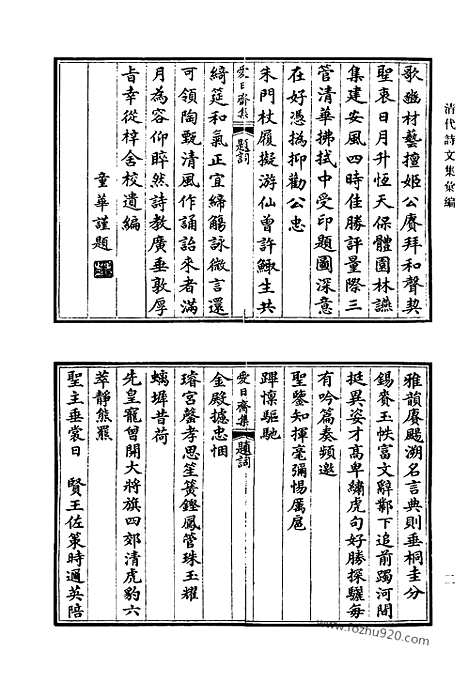 清代詩文集彙編
歌鑑材藝擅姬公賡拜和聲契
聖衷日月升恆天保體園林讌
集建安風四時佳勝評量際三
管清華拂拭中受印題圖深意
在好憑撝抑勸公忠
朱門杖履擬游仙曾許鯫生共
愛日齋集 題詞
綺筵和氣正宜締觴詠微言還
可領陶甄清風作誦詒來者滿
月為容仰睟然詩教廣垂敦厚
旨幸從梓舍校遺編
童華謹題
雅韻賡颺溯名言典則垂桐圭分
錫賚玉帙富文辭鄴下追前躅河間
挺異姿才高卑繡虎句好勝探驪每
有吟篇奏頻邀
聖鑒知揮毫彌惕厲扈
蹕懍驅馳
愛日齋集 題詞
金殿攄忠悃
璿宮罄孝思笙簧鏗鳳管珠玉耀
螭墀昔荷
先皇寵曾開大將旗四郊清虎豹六
萃靜熊羆
聖主垂裳日 賢王佐策時過英陪
二
www.fozhu920.com